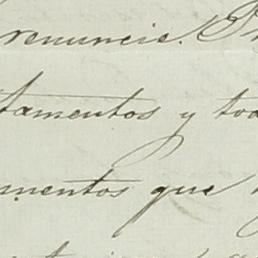 renuncie.
tamentos y tod
mentos que